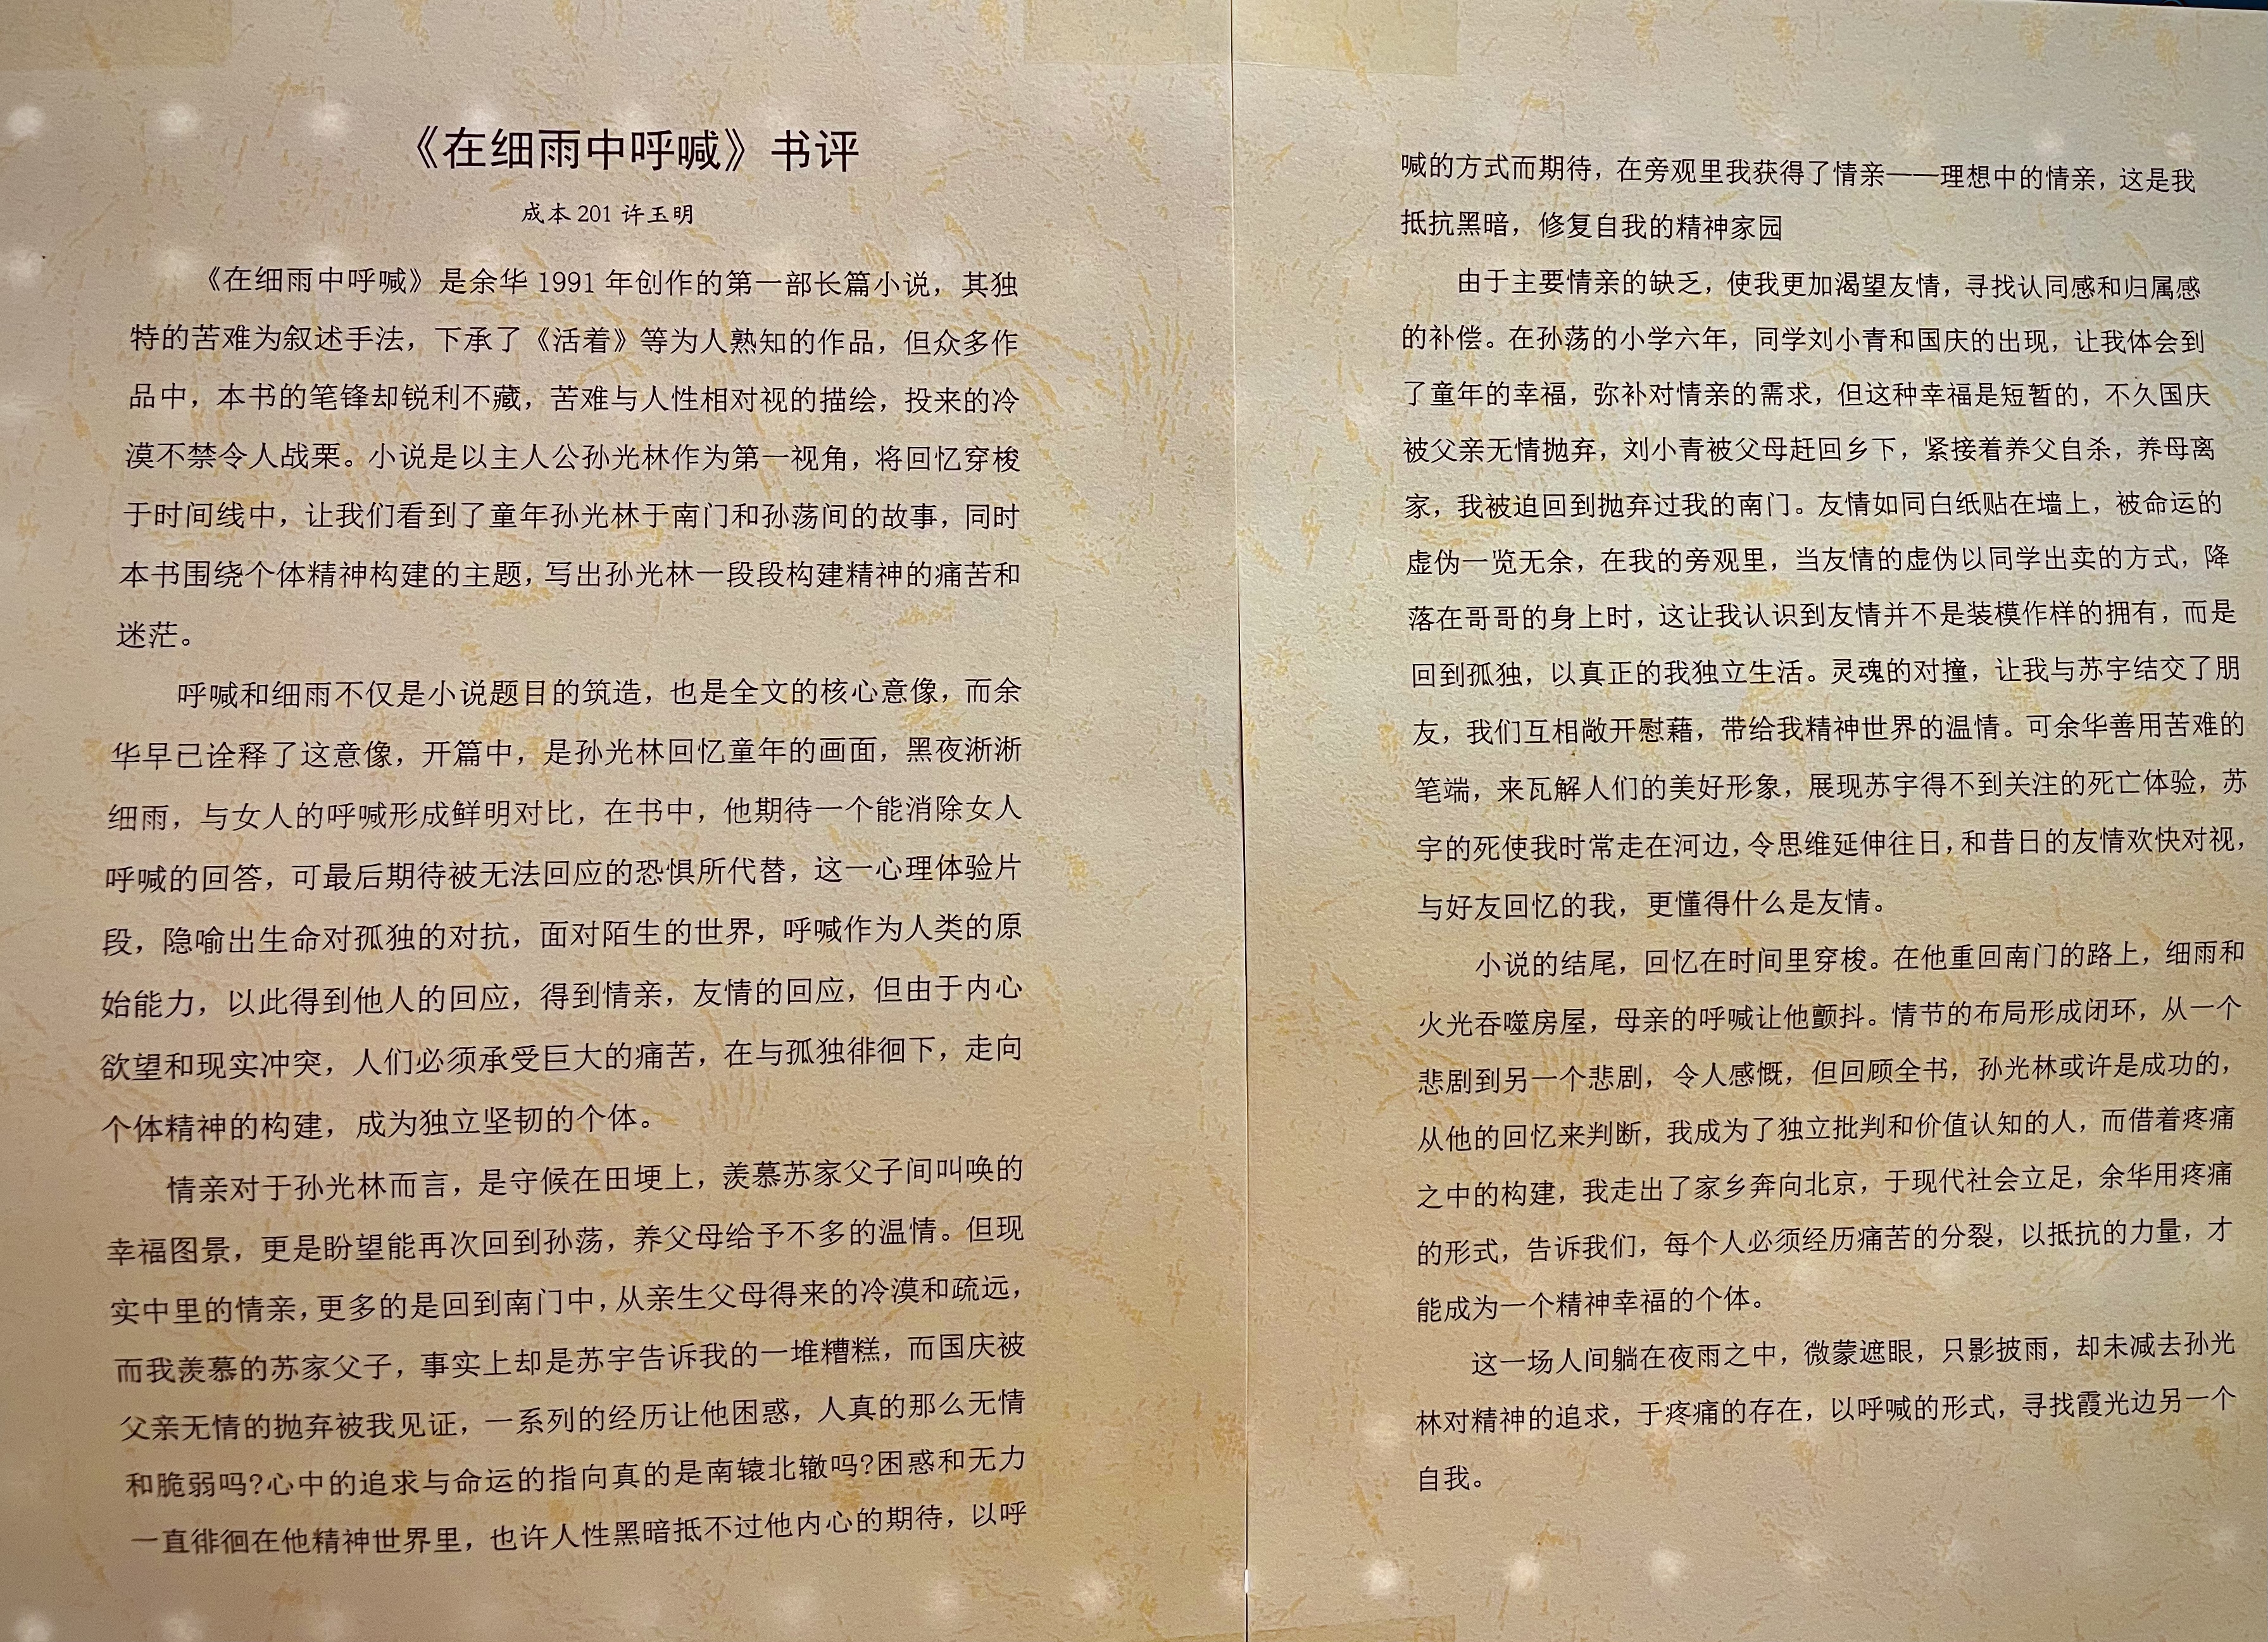 《在细雨中呼喊》书评
成本 201 许玉明
《在细雨中呼喊》是余华 1991 年创作的第一部长篇小说，其独
特的苦难为叙述手法，下承了《活着》等为人熟知的作品，但众多作
品中，本书的笔锋却锐利不藏，苦难与人性相对视的描绘，投来的冷
漠不禁令人战栗。小说是以主人公孙光林作为第一视角，将回忆穿梭
于时间线中，让我们看到了童年孙光林于南门和孙荡间的故事，同时
本书围绕个体精神构建的主题，写出孙光林一段段构建精神的痛苦和
迷茫。
呼喊和细雨不仅是小说题目的筑造，也是全文的核心意像，而余
华早已诠释了这意像，开篇中，是孙光林回忆童年的画面，黑夜淅淅
细雨，与女人的呼喊形成鲜明对比，在书中，他期待一个能消除女人
呼喊的回答，可最后期待被无法回应的恐惧所代替，这一心理体验片
段，隐喻出生命对孤独的对抗，面对陌生的世界，呼喊作为人类的原
始能力，以此得到他人的回应，得到情亲，友情的回应，但由于内心
欲望和现实冲突，人们必须承受巨大的痛苦，在与孤独徘徊下，走向
个体精神的构建，成为独立坚韧的个体。
情亲对于孙光林而言，是守候在田埂上，羡慕苏家父子间叫唤的
幸福图景，更是盼望能再次回到孙荡，养父母给予不多的温情。但现
实中里的情亲，更多的是回到南门中，从亲生父母得来的冷漠和疏远，
而我羡慕的苏家父子，事实上却是苏宇告诉我的一堆糟糕，而国庆被
父亲无情的抛弃被我见证，一系列的经历让他困惑，人真的那么无情
和脆弱吗?心中的追求与命运的指向真的是南辕北辙吗?困惑和无力
一直徘徊在他精神世界里，也许人性黑暗抵不过他内心的期待，以呼
喊的方式而期待，在旁观里我获得了情亲——理想中的情亲，这是我
抵抗黑暗，修复自我的精神家园
由于主要情亲的缺乏，使我更加渴望友情，寻找认同感和归属感
的补偿。在孙荡的小学六年，同学刘小青和国庆的出现，让我体会到
了童年的幸福，弥补对情亲的需求，但这种幸福是短暂的，不久国庆
被父亲无情抛弃，刘小青被父母赶回乡下，紧接着养父自杀，养母离
家，我被迫回到抛弃过我的南门。友情如同白纸贴在墙上，被命运的
虚伪一览无余，在我的旁观里，当友情的虚伪以同学出卖的方式，降
落在哥哥的身上时，这让我认识到友情并不是装模作样的拥有，而是
回到孤独，以真正的我独立生活。灵魂的对撞，让我与苏宇结交了朋
友，我们互相敞开慰藉，带给我精神世界的温情。可余华善用苦难的
笔端，来瓦解人们的美好形象，展现苏宇得不到关注的死亡体验，苏
宇的死使我时常走在河边，令思维延伸往日，和昔日的友情欢快对视，
与好友回忆的我，更懂得什么是友情。
小说的结尾，回忆在时间里穿梭。在他重回南门的路上，细雨和
火光吞噬房屋，母亲的呼喊让他颤抖。情节的布局形成闭环，从一个
悲剧到另一个悲剧，令人感慨，但回顾全书，孙光林或许是成功的，
从他的回忆来判断，我成为了独立批判和价值认知的人，而借着疼痛
之中的构建，我走出了家乡奔向北京，于现代社会立足，余华用疼痛
的形式，告诉我们，每个人必须经历痛苦的分裂，以抵抗的力量，才
能成为一个精神幸福的个体。
这一场人间躺在夜雨之中，微蒙遮眼，只影披雨，却未减去孙光
林对精神的追求，于疼痛的存在，以呼喊的形式，寻找霞光边另一个
自我。